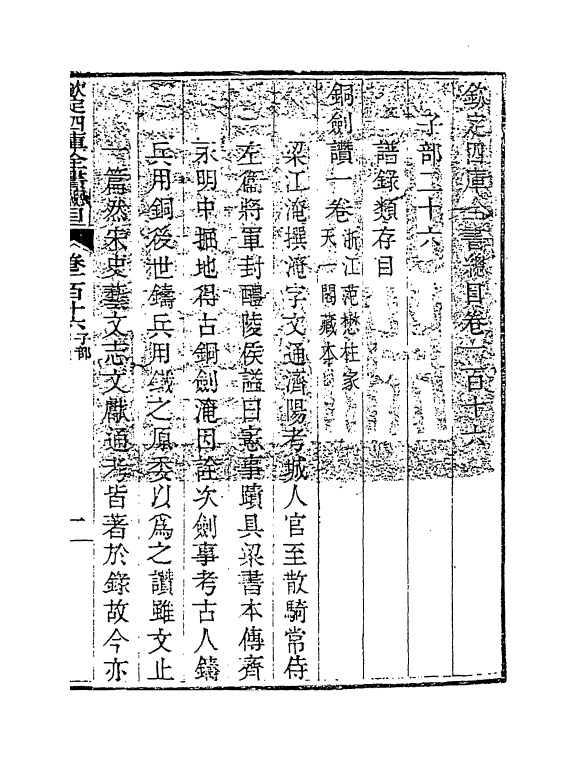 欽定四庫全書總目卷一百十六
子部二十六
譜錄類存目
銅劍讚一卷浙江范懋柱家天一閣藏本
梁江淹撰淹字文通濟陽考城人官至散騎常侍
左衞將軍封醴陵侯諡曰憲事蹟具梁書本傳齊
永明中掘地得古銅劍淹因詮次劍事考古人鑄
兵用銅後世鑄兵用鐵之原委以爲之讚雖文止
一篇然宋史藝文志文獻通考皆著於錄故今亦
欽定四庫全書總目 卷一百十六 子部 一